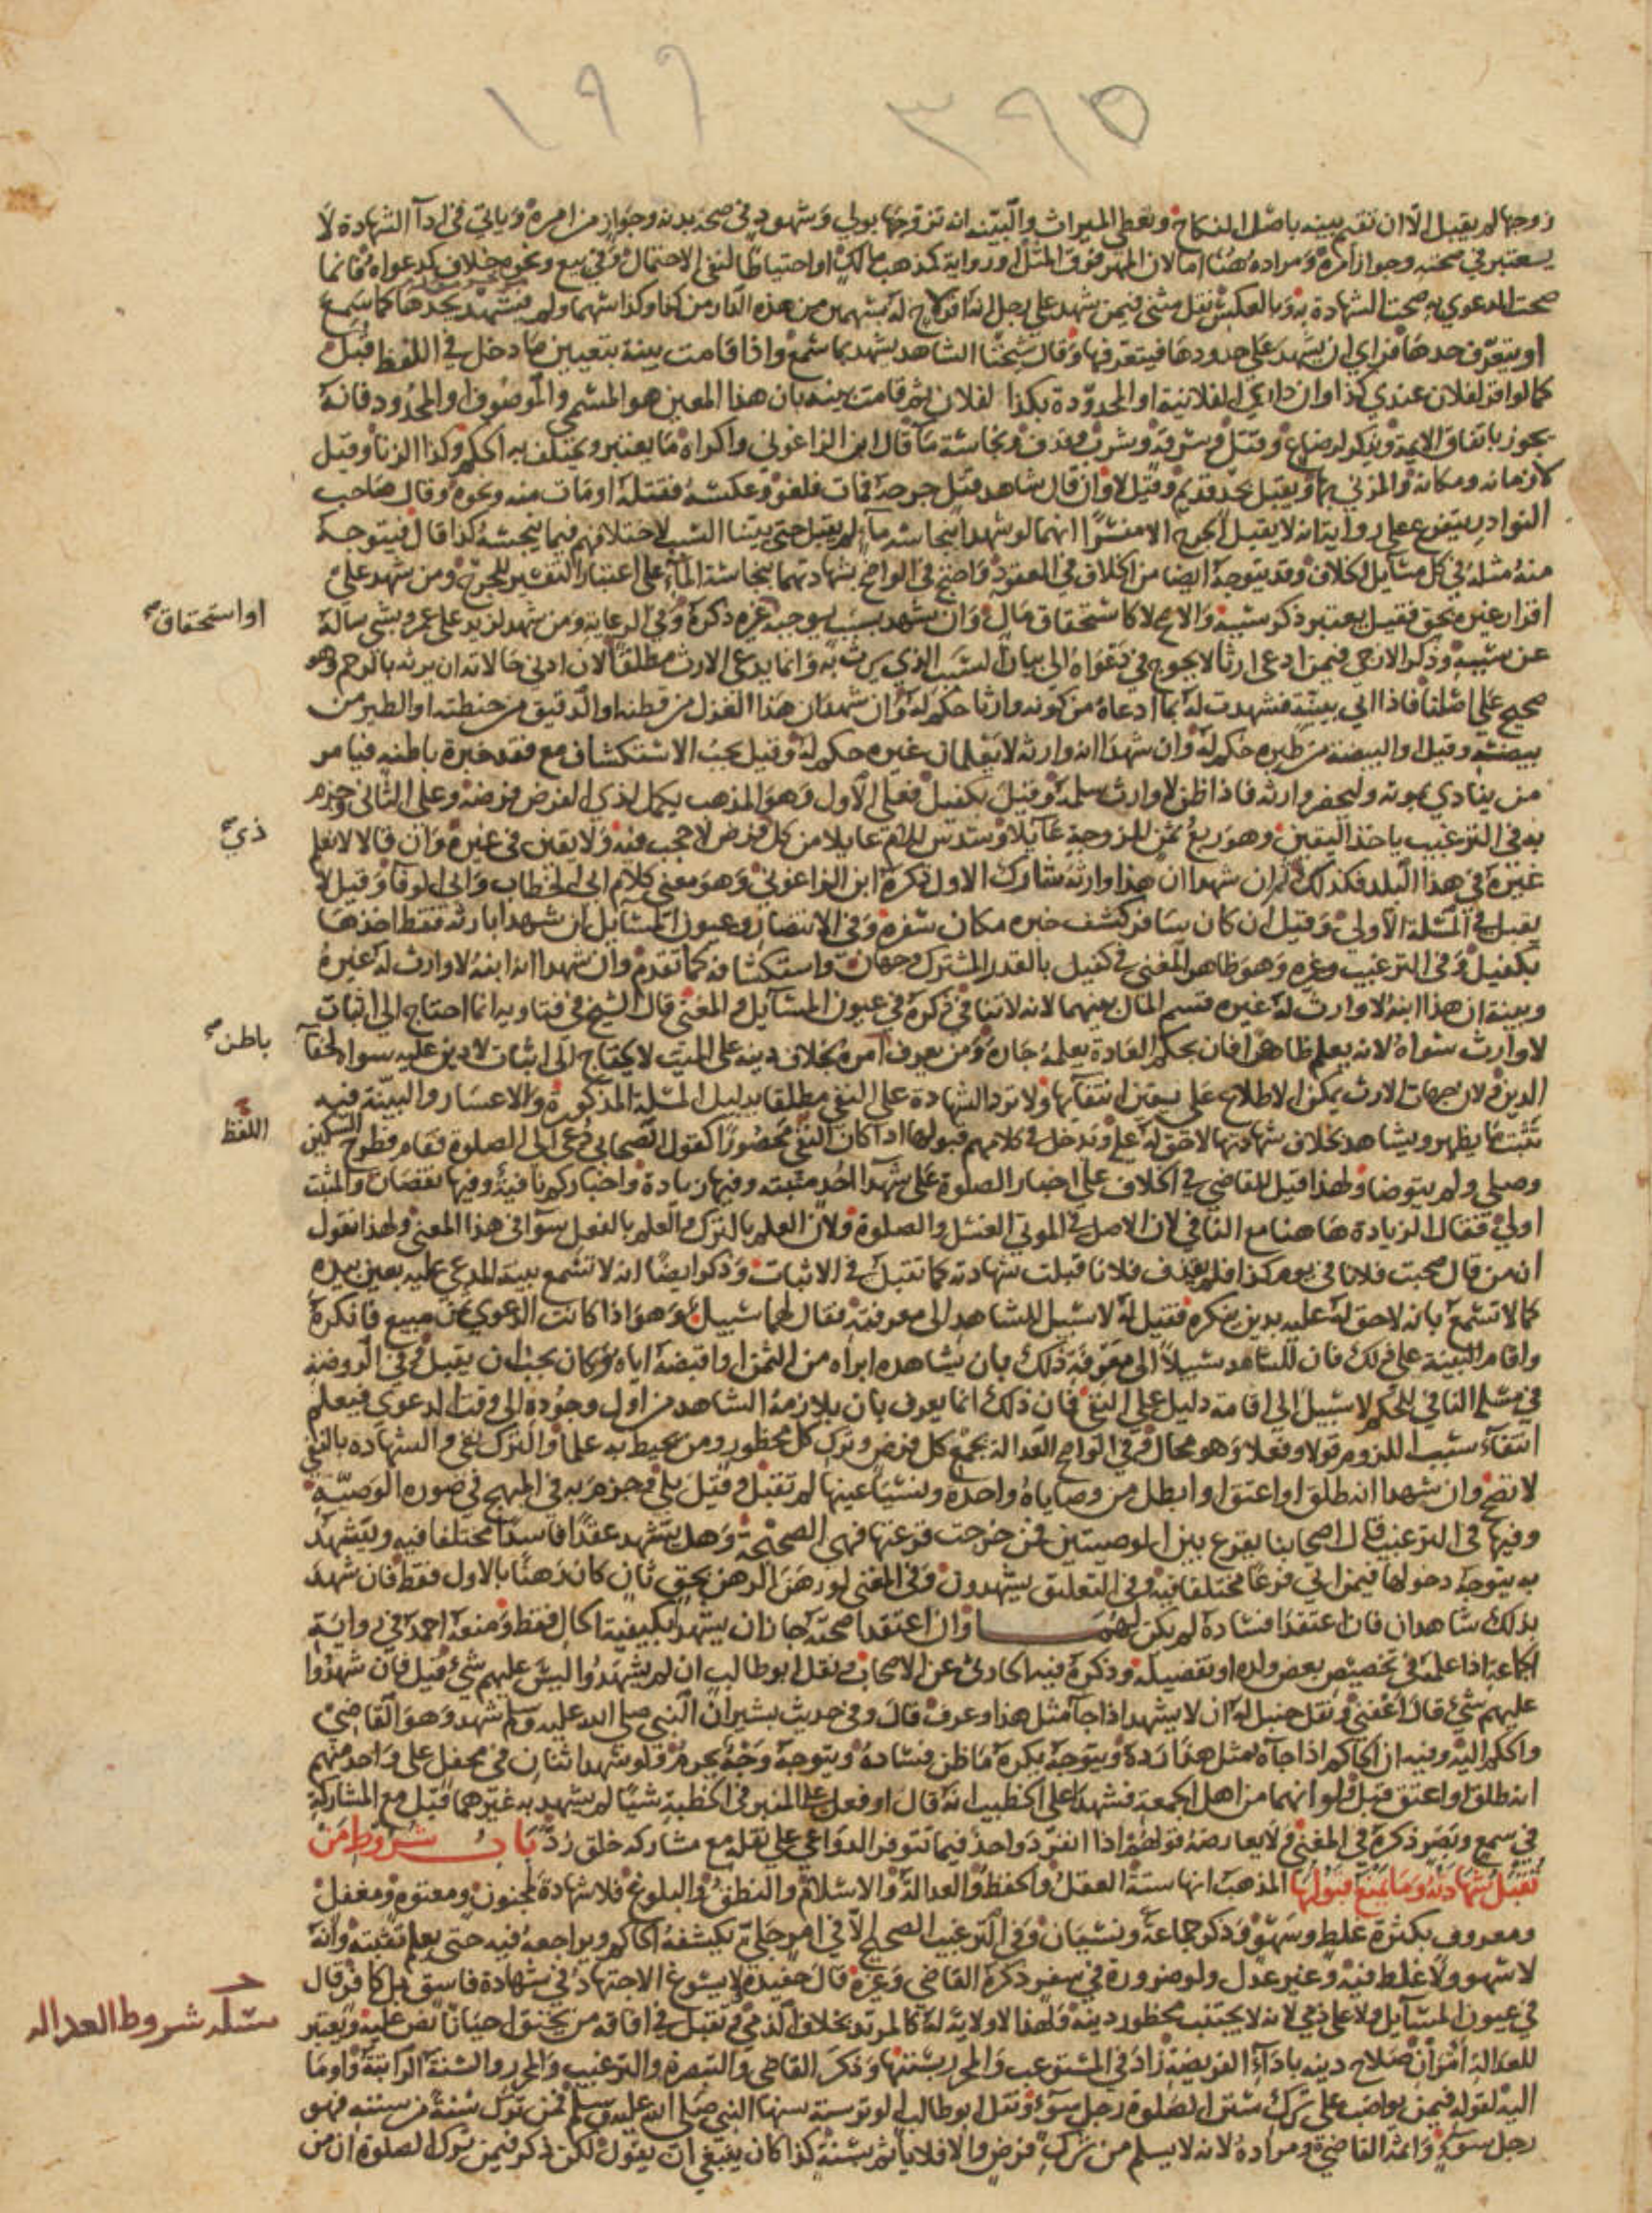 ١٩٦ ٣٩٥
زوجها لم يقبل الا ان تقم بينه باصل النكاح ويعطى الميراث والبينه انه تزوجها بولي وشهود في صحة بدنه وجواز من امره وياتي في اداآ الشهادة لا
يعتبر في صحته وجواز امره ومراده هنا اما لان المهر فوق المثل او رواية كمذهب مالك او احتياطا لنفي الاحتمال وفي بيع ونحوه خلاف كدعواه فانما
صحت الدعوي به صحت الشهادة به وبالعكس نقل مثنى فيمن شهد على رجل انه اقر لاخ له بسهمين من هذه الدار من كذا وكذا سهما ولم يشهد بحدها كما سمع
او يتعرف حدها فراي ان يشهد على حدودها فيتعرفها وقال شيخنا الشاهد يشهد بما سمع واذا قامت بينة بتعيين ما دخل في اللفظ قبل
كما لو اقر لفلان عندي كذا وان داري الفلانية او المحدودة بكذا لفلان ثم قامت بينه بان هذا المعين هو المسمى والموصوف او المحدود فانه
يجوز باتفاق الايمة ويذكر لرضاع وقتل وسرقة وشرب وقذف ونجاسة ما قال ابن الزاغوني واكراه ما يعتبر ويختلف به الحكم وكذا الزنا وقيل
لا زمانه ومكانه والمزني بها ويقبل بحد قديم وقيل لا وان قال شاهد قتل جرحه فمات فلغو وعكسه فقتله او مات منه ونحوه وقال صاحب
النوادر يتفرع على رواية انه لا يقبل الجرح الا مفسرا انهما لو شهدا بنجاسة مآء لم يقبل حتى يبينا السبب لاختلافهم فيما ينجسه كذا قال فيتوجه
منه مثله في كل مسايل الخلاف وقد يتوجه ايضا من الخلاف في العقود واضح في الواضح بشهادتهما بنجاسة المآء على اعتبار التفسير للجرح ومن شهد على
اقرار غيره بحق فقيل يعتبر ذكر سببه والاصح لا كاستحقاق مال وان شهد بسبب يوجبه غيره ذكره وفي الرعاية ومن شهد لزيد على عمرو بشي ساله
عن سببه وذكر الازجي فيمن ادعى ارثا لا يحوج في دعواه الى بيان السبب الذي يرث به وانما يدعى الارث مطلقا لان ادنى حالاته ان يرثه بالرحم وهو
صحيح على اصلنا فاذا اتي ببينة فشهدت له بما ادعاه من كونه وارثا حكم له وان شهدا ان هذا الغزل من قطنه او الدقيق من حنطته او الطير من
بيضته وقيل او البيضة من طيره حكم له وان شهدا انه وارثه لا يعلمان غيره حكم له وقيل يجب الاستكشاف مع فقد خبرة باطنه فيامر
من ينادي بموته وليحضر وارثه فاذا ظن لا وارث سلمه وقيل بكفيل فعلى الاول وهو المذهب يكمل لذي الفرض فرضه وعلى الثاني وجزم
به في الترغيب ياخذ اليقين وهو ربع ثمن للزوجة عايلا وسدس للام عايلا من كل فرض لا حجب فيه ولا يقين في غيره وان قالا لا نعلم
غيره في هذا البلد فكذلك ثم ان شهدا ان هذا وارثه شارك الاول ذكره ابن الزاغوني وهو معنى كلام ابي الخطاب وابي الوفا وقيل لا
يقبل في المسئلة الاولى وقيل ان كان سافر كشف خبره مكان سفره وفي الانتصار وعيون المسايل ان شهدا بارثه فقط اخذها
بكفيل وفي الترغيب وغيره وهو ظاهر المغني في كفيل بالقدر المشترك وجهان واستكشافه كما تقدم وان شهدا انه ابنه لا وارث له غيره
وبينة ان هذا ابنه لا وارث له غيره قسم المال بينهما لانه لا تنافي ذكره في عيون المسايل والمغني قال الشيخ في فتاويه انما احتاج الى اثبات
لا وارث سواه لانه يعلم ظاهرا فان بحكم العادة يعلمه جاره ومن يعرف امره بخلاف دينه على الميت لا يحتاج الى اثبات لا دين عليه سواه لخفآ
الدين ولان جهات الارث يمكن الاطلاع على يقين انتفآئها ولا ترد الشهادة على النفي مطلقا بدليل المسئلة المذكورة والاعسار والبينة فيه
تثبت ما يظهر ويشاهد بخلاف شهادتهما لا حق له عليه ويدخل في كلامهم قبولها اذا كان النفي محصورا كقول الصحابي دعي الى الصلوة فقام وطرح السكين
وصلى ولم يتوضا ولهذا قيل للقاضي في الخلاف على اخبار الصلوة على شهدآ احد مثبته وفيها زيادة واخباركم نافية وفيها نقصان والمثبت
اولى فقال الزيادة هاهنا مع النافي لان الاصل في الموتى الغسل والصلوة ولان العلم بالترك والعلم بالفعل سوآ في هذا المعنى ولهذا نقول
ان من قال صحبت فلانا في يوم كذا فلم يقذف فلانا قبلت شهادته كما تقبل في الاثبات وذكر ايضا انه لا تسمع بينة المدعي عليه بعين بيده
كما لا تسمع بانه لا حق له عليه بدين ينكره فقيل له لا سبيل للشاهد الى معرفته فقال لهما سبيل وهو اذا كانت الدعوى ثمن مبيع فانكره
واقام البينة على ذلك فان للشاهد سبيلا الى معرفة ذلك بان يشاهده ابراه من الثمن او اقبضه اياه وكان يجب ان يقبل وفي الروضة
في مسلة النافي للحكم لا سبيل الى اقامة دليل على النفي فان ذلك انما يعرف بان يلازمه الشاهد من اول وجوده الى وقت الدعوى فيعلم
انتفآء سبب اللزوم قولا وفعلا وهو محال وفي الواضح العدالة بجمع كل فرض وترك كل محظور ومن يحيط به علما والترك نفي والشهاده بالنفي
لا تصح وان شهدا انه طلق او اعتق او ابطل من وصاياه واحدة ونسيا عينها لم تقبل وقيل بلى وجزم به في المبهج في صورة الوصية
وفيها في الترغيب قال اصحابنا يقرع بين الوصيتين فمن خرجت قرعتها فهي الصحيحة وهل يشهد عقدا فاسدا مختلفا فيه ويشهد
به يتوجه دخولها فيمن اتى فرعا مختلفا فيه وفي التعليق يشهدون وفي المغني لو رهن الرهن بحق ثان كان رهنا بالاول فقط فان شهد
بذلك شاهدان فان اعتقدا فساده لم يكن لهما وان اعتقدا صحته جاز ان يشهدا بكيفية الحال فقط ومنعه احمد في رواية
الجماعة اذا علمه في تخصيص بعض ولده او تفضيله وذكره فيه الحارثي عن الاصحاب ونقل ابو طالب ان لم يشهدوا ليس عليهم شي قيل فان شهدوا
عليهم شي قال اعفني ونقل حنبل له ان لا يشهد اذا جآ مثل هذا وعرف قال وفي حديث بشير ان النبي صلى الله عليه وسلم شهد وهو القاضي
والحكم اليه وفيه ان الحاكم اذا جآه مثل هذا رده ويتوجه يكره ما ظن فساده ويتوجه وجه يحرم ولو شهد اثنان في محفل على واحد منهم
انه طلق او اعتق قبل ولو انهما من اهل الجمعة فشهدا على الخطيب انه قال او فعل على المنبر في الخطبة شيا لم يشهد به غيرهما قبل مع المشاركة
في سمع وبصر ذكره في المغني ولا يعارضه قولهم اذا انفرد واحد فيما تتوفر الدواعي على نقله مع مشاركة خلق رد باب شروط من
تقبل شهادته وما يمنع قبولها المذهب انها ستة العقل والحفظ والعدالة والاسلام والنطق والبلوغ فلا شهادة لمجنون ومعتوه ومغفل
ومعروف بكثرة غلط وسهو وذكر جماعة ونسيان وفي الترغيب الصحيح الا في امر جلي يكشفه الحاكم ويراجعه فيه حتى يعلم تثبته وانه
لا سهو ولا غلط فيه وغير عدل ولو ضرورة في سفر ذكره القاضي وغيره قال حفيده لا يسوغ الاجتهاد في شهادة فاسق بل كافر قال
في عيون المسايل ولا على ذمي لانه لا يجتنب محظور دينه ولهذا لا ولاية له كالمرتد بخلاف الذمي وتقبل في افاقه من يخنق احيانا نص عليه ويعتبر
للعدالة امران صلاح دينه بادآء الفريضة زاد في المستوعب والمحرر بسنتها وذكر القاضي والتبصرة والترغيب والمحرر والسنة الراتبة واوما
اليه لقوله فيمن يواضب على ترك سنن الصلوة رجل سوء ونقل ابو طالب الوتر سنة سنها النبي صلى الله عليه وسلم فمن ترك سنة من سننه فهو
رجل سوء واثمه القاضي ومراده لانه لا يسلم من ترك فرض والا فلا ياثم بسنة كذا كان ينبغي ان يقول لكن ذكر فيمن ترك الصلوة ان من
او استحقاق
ذي
باطن
اللفظ
مسئلة شروط العدالة